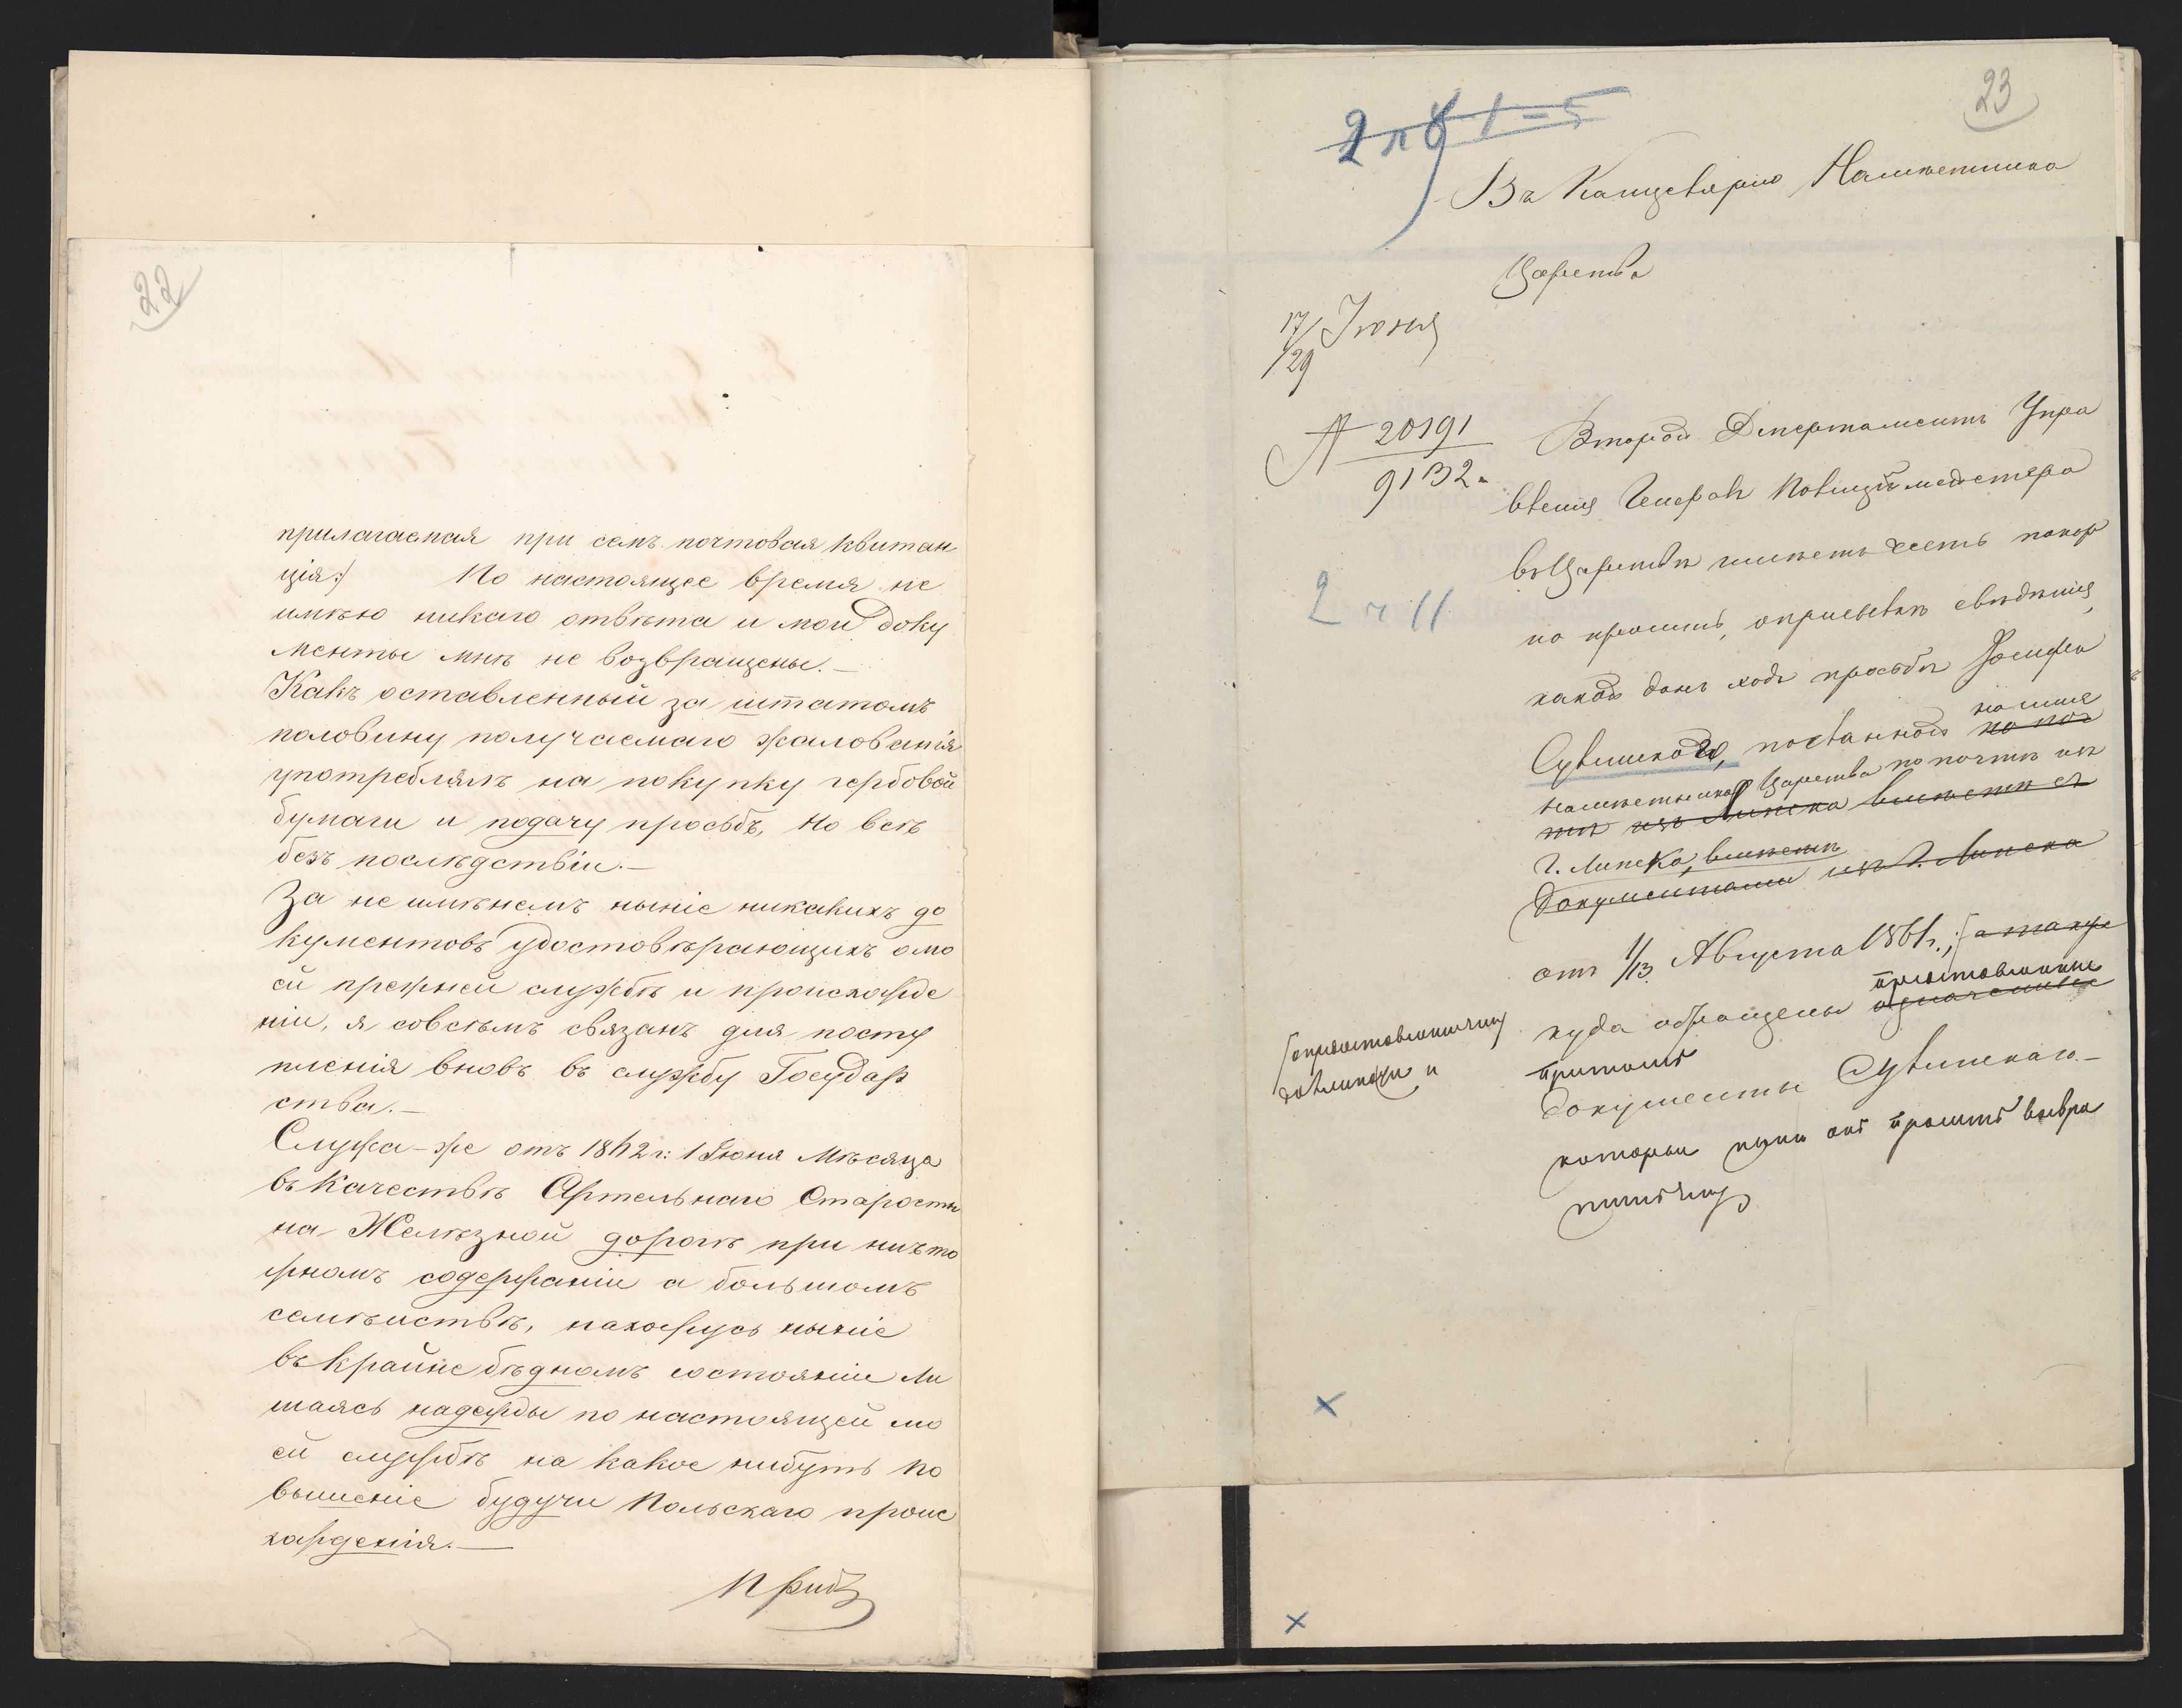 22
прилагаемая при семъ почтовая квитан
ція:/ По настоящее время не
имѣю никаго отвѣта и мои доку
менты мнѣ не возвращены.—
Какъ оставленный за штатомъ
половину получаемаго жалованія
употреблялъ на покупку гербовой
бумаги и подачу просьбъ, но всѣ
безъ послѣдствіи.—
За не имѣнемъ ныніе никакихъ до
кументовъ удостовѣрающихъ о мо
ей прежней службѣ и происхожде
ніи, я совсѣмъ связанъ для посту
пленія вновь въ службу Государ
ства.—
Служа-же отъ 1862 г: 1 Іюня Мѣсяца
въ Качествѣ Артельнаго Старосты
на Желѣзной дорогѣ при ничто
жномъ содержаніи а большомъ
семѣиствѣ, нахожусь ныніе
въ крайне бѣдномъ состояніи ли
шаясь надежды по настоящей мо
ей службѣ на какое нибуть по
вышеніе будучи Польскаго проис
хожденія.—
23
Въ Канцелярію Намѣстника
Царства
17/29 Іюня
№ 20191
9132.
Второй Департаментъ Упра
вленія Генералъ Полицiймейстера
въ Царствѣ имѣетъ честь покор
но просить, о присылкѣ свѣдѣнія,
какой данъ ходъ просьбѣ Іосифа
на имя
Сулинскаго, посланной по поч
Намѣстника Царства по почтѣ изъ
тѣ изъ Липска вмѣстѣ съ
г. Липска, вмѣстѣ
документами изъ г. Липска
отъ 1/13 Августа 1861 г.; а также
представленные
куда обращены означенные
при томъ
документы Сулинскаго.—
которые нынѣ онъ проситъ возвра
2 ч 11